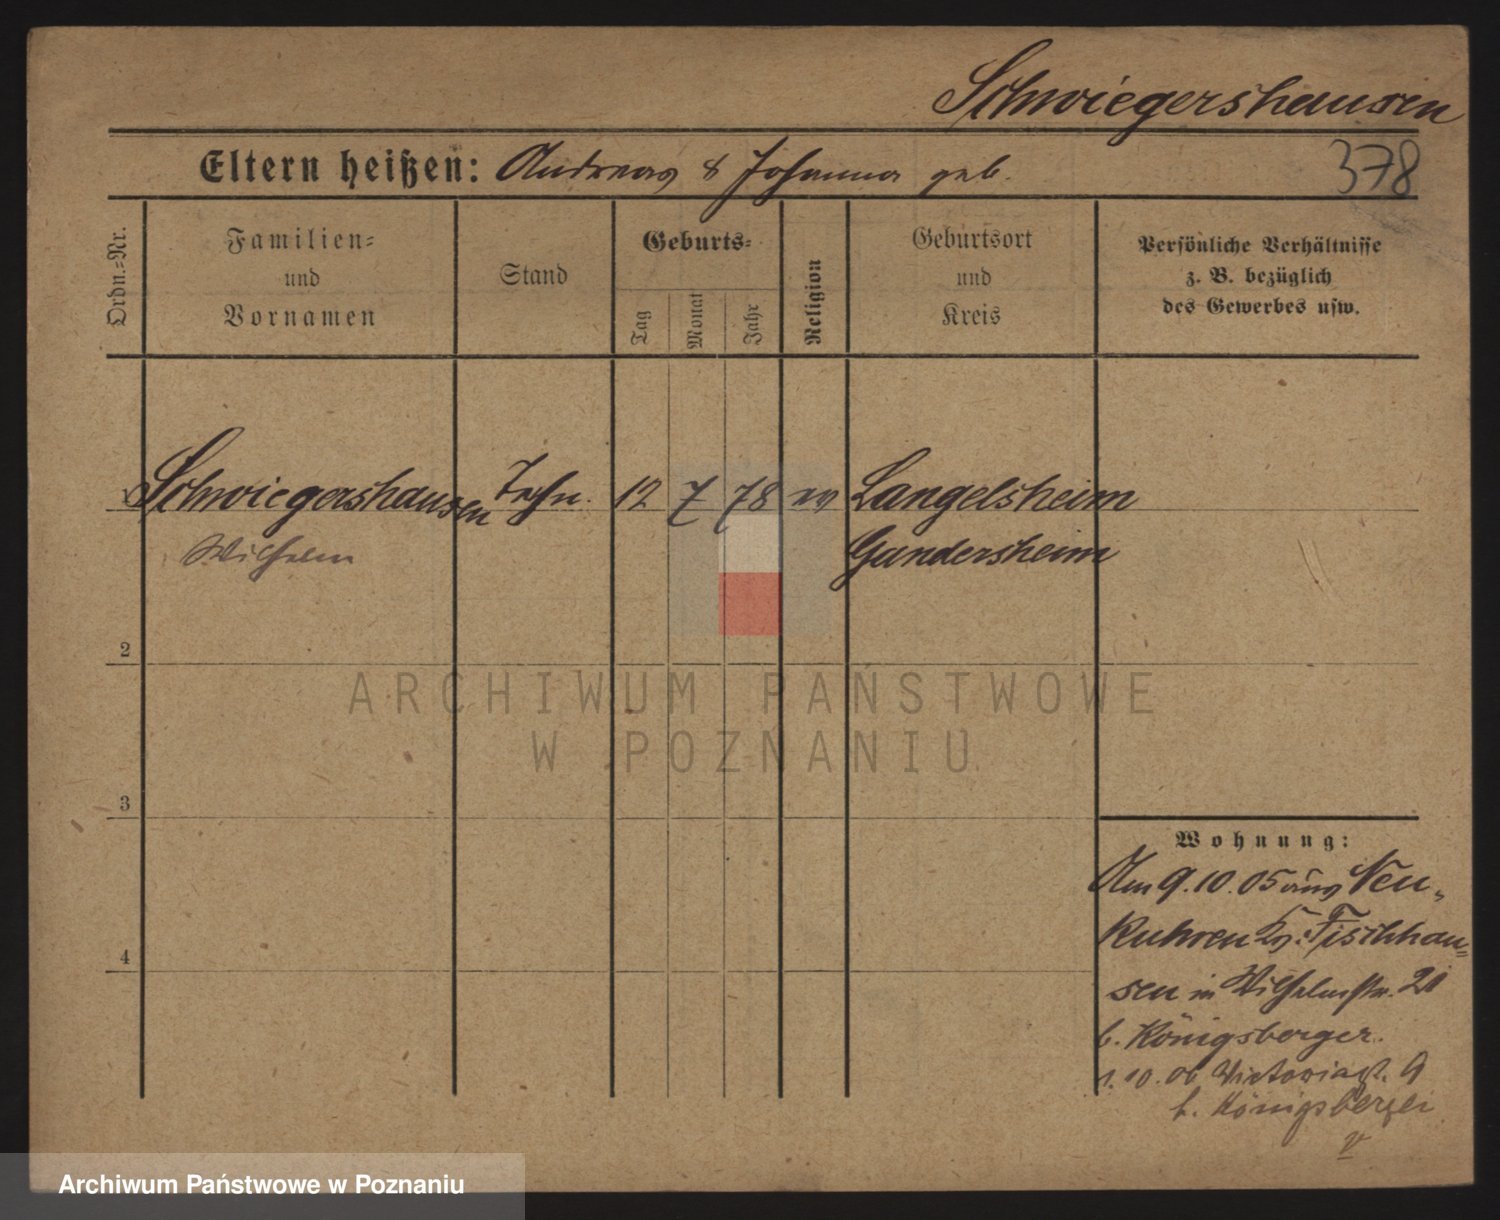 Schwiegershausen
Eltern heißen: Andreas & Johanna geb.
378
Ordn.-Nr.
Familien- und Vornamen
Stand
Geburts-
Tag
Monat
Jahr
Religion
Geburtsort und Kreis
Persönliche Verhältnisse
z. B. bezüglich
des Gewerbes usw.
1 Schwiegershausen 12 7 78 Langelsheim
Wilhelm Gandersheim
2
ARCHIWUM PAŃSTWOWE
W POZNANIU
3
Wohnung:
Am 9.10.05 aus Neu-
kuhren Kr. Fischhau-
sen in Wilhelmstr. 21
b. Königsberger.
1.10.06 Victoriast. 9
b. Königsberger
4
Archiwum Państwowe w Poznaniu